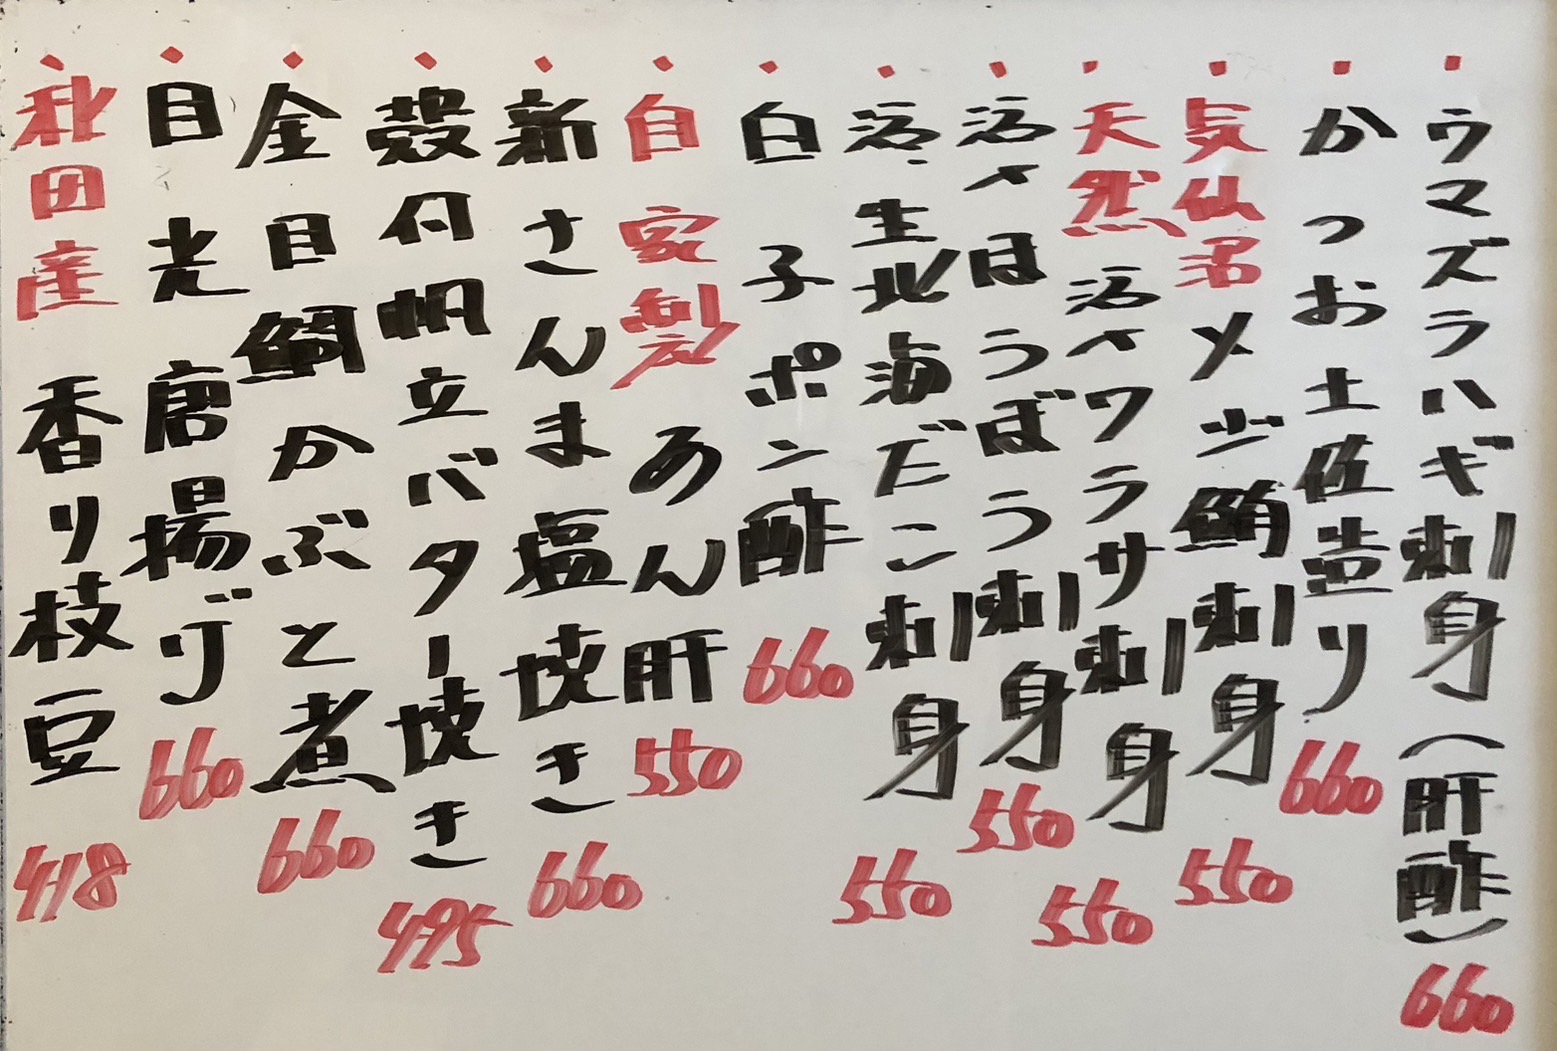 ・ウマズラハギ刺身(肝酢) 660
・かつお土佐造り 660
・気仙沼 メジ鮪刺身 550
・天然 活〆ワラサ刺身 550
・活〆ほうぼう刺身 550
・活、生北海だこ刺身 550
・白子ポン酢 660
・自家製 あん肝 550
・新さんま塩焼き 660
・殻付帆立バター焼き 495
・金目鯛かぶと煮 660
・目光唐揚げ 660
・秋田産 香り枝豆 418